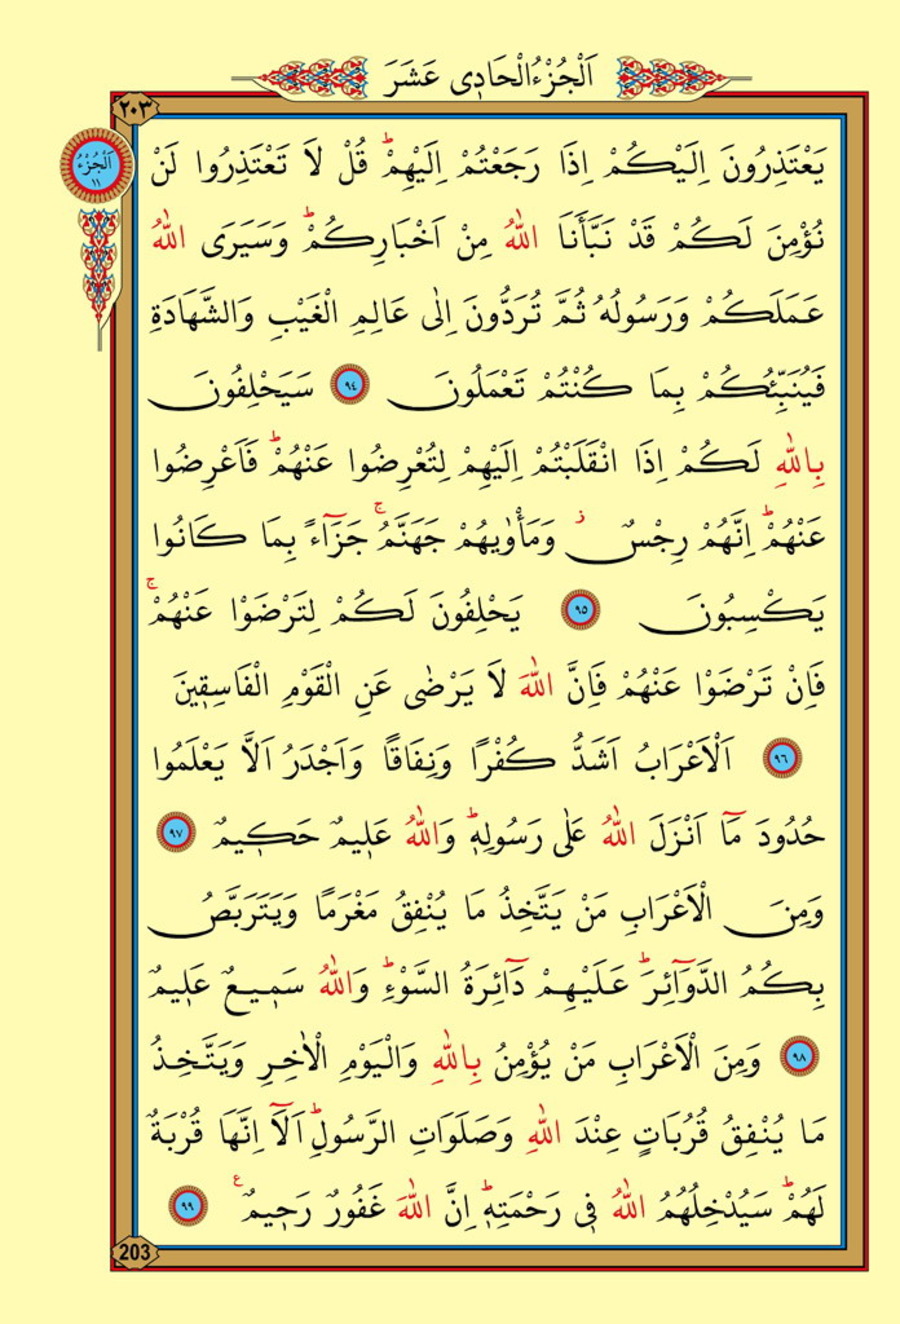 اَلْجُزْءُالْحَادٖى عَشَرَ
٢٠٣
اَلْجُزْءُ
١١
يَعْتَذِرُونَ اِلَيْكُمْ اِذَا رَجَعْتُمْ اِلَيْهِمْؕ قُلْ لَا تَعْتَذِرُوا لَنْ
نُؤْمِنَ لَكُمْ قَدْ نَبَّأَنَا اللّٰهُ مِنْ اَخْبَارِكُمْؕ وَسَيَرَى اللّٰهُ
عَمَلَكُمْ وَرَسُولُهُ ثُمَّ تُرَدُّونَ اِلٰى عَالِمِ الْغَيْبِ وَالشَّهَادَةِ
فَيُنَبِّئُكُمْ بِمَا كُنْتُمْ تَعْمَلُونَ ٩٤ سَيَحْلِفُونَ
بِاللّٰهِ لَكُمْ اِذَا انْقَلَبْتُمْ اِلَيْهِمْ لِتُعْرِضُوا عَنْهُمْؕ فَاَعْرِضُوا
عَنْهُمْؕ اِنَّهُمْ رِجْسٌؗ وَمَأْوٰيهُمْ جَهَنَّمُۚ جَزَٓاءً بِمَا كَانُوا
يَكْسِبُونَ ٩٥ يَحْلِفُونَ لَكُمْ لِتَرْضَوْا عَنْهُمْۚ
فَاِنْ تَرْضَوْا عَنْهُمْ فَاِنَّ اللّٰهَ لَا يَرْضٰى عَنِ الْقَوْمِ الْفَاسِقٖينَ
٩٦ اَلْاَعْرَابُ اَشَدُّ كُفْرًا وَنِفَاقًا وَاَجْدَرُ اَلَّا يَعْلَمُوا
حُدُودَ مَٓا اَنْزَلَ اللّٰهُ عَلٰى رَسُولِهٖؕ وَاللّٰهُ عَلٖيمٌ حَكٖيمٌ ٩٧
وَمِنَ الْاَعْرَابِ مَنْ يَتَّخِذُ مَا يُنْفِقُ مَغْرَمًا وَيَتَرَبَّصُ
بِكُمُ الدَّوَٓائِرَؕ عَلَيْهِمْ دَٓائِرَةُ السَّوْءِؕ وَاللّٰهُ سَمٖيعٌ عَلٖيمٌ
٩٨ وَمِنَ الْاَعْرَابِ مَنْ يُؤْمِنُ بِاللّٰهِ وَالْيَوْمِ الْاٰخِرِ وَيَتَّخِذُ
مَا يُنْفِقُ قُرُبَاتٍ عِنْدَ اللّٰهِ وَصَلَوَاتِ الرَّسُولِؕ اَلَٓا اِنَّهَا قُرْبَةٌ
لَهُمْؕ سَيُدْخِلُهُمُ اللّٰهُ فٖى رَحْمَتِهٖؕ اِنَّ اللّٰهَ غَفُورٌ رَحٖيمٌ ع ٩٩
203